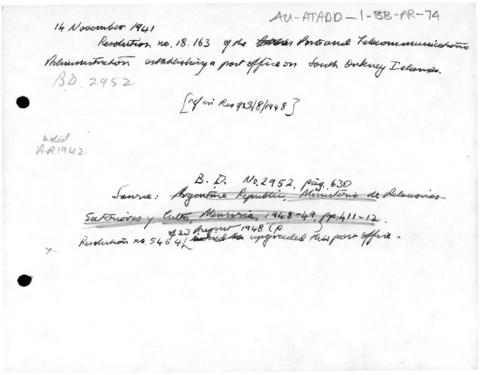 AU-ATADD-1-BB-AR-74
14 November 1941
Resolution no. 18.163 of the Posts and Telecommunications
Administration establishing a post office on South Orkney Islands.
B.D. 2952
[ref in Res of 23/8/1948]
noted
AR1942
B. D. No. 2952, pág. 630
Source: Argentine Republic, Ministerio de Relaciones
Exteriores y Culto, Memoria, 1948-49, pp. 411-12.
of 23 August 1948 (p
Resolution no. 5464 upgraded this post office.
x